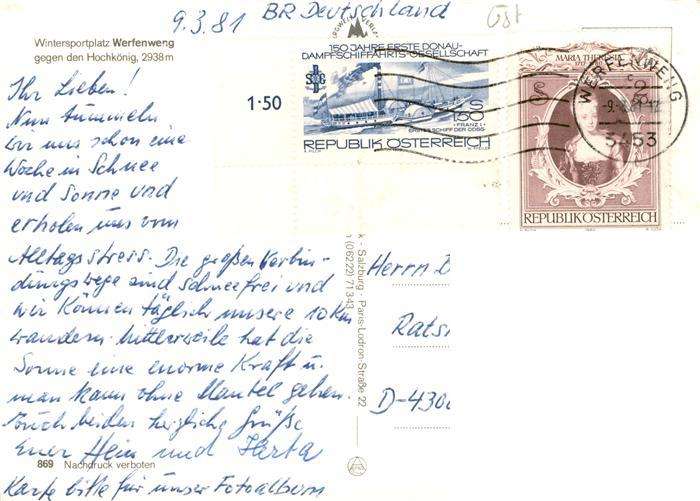 9.3.81 BR Deutschland
Wintersportplatz Werfenweng
gegen den Hochkönig, 2938 m
Ihr Lieben!
Nun tummeln
wir uns schon eine
Woche in Schnee
und Sonne und
erholen uns vom
Alltagsstress. Die großen Verbin-
dungswege sind schneefrei und
wir können täglich unsere 10 km
wandern. Mittlerweile hat die
Sonne eine enorme Kraft u.
man kann ohne Mantel gehen.
Euch beiden herzliche Grüße
Euer Hein und Herta
869 Nachdruck verboten
Karte bitte für unser Fotoalbum
1·50
150 JAHRE ERSTE DONAU-
DAMPFSCHIFFAHRTS-GESELLSCHAFT
S 1.50
FRANZ I
ERSTES SCHIFF DER DDSG
REPUBLIK ÖSTERREICH
MARIA THERESIA
S
REPUBLIK ÖSTERREICH
WERFENWENG
3453
k - Salzburg · Paris-Lodron-Straße 22
(06222) 71343
Herrn D
Ratsi
D-430